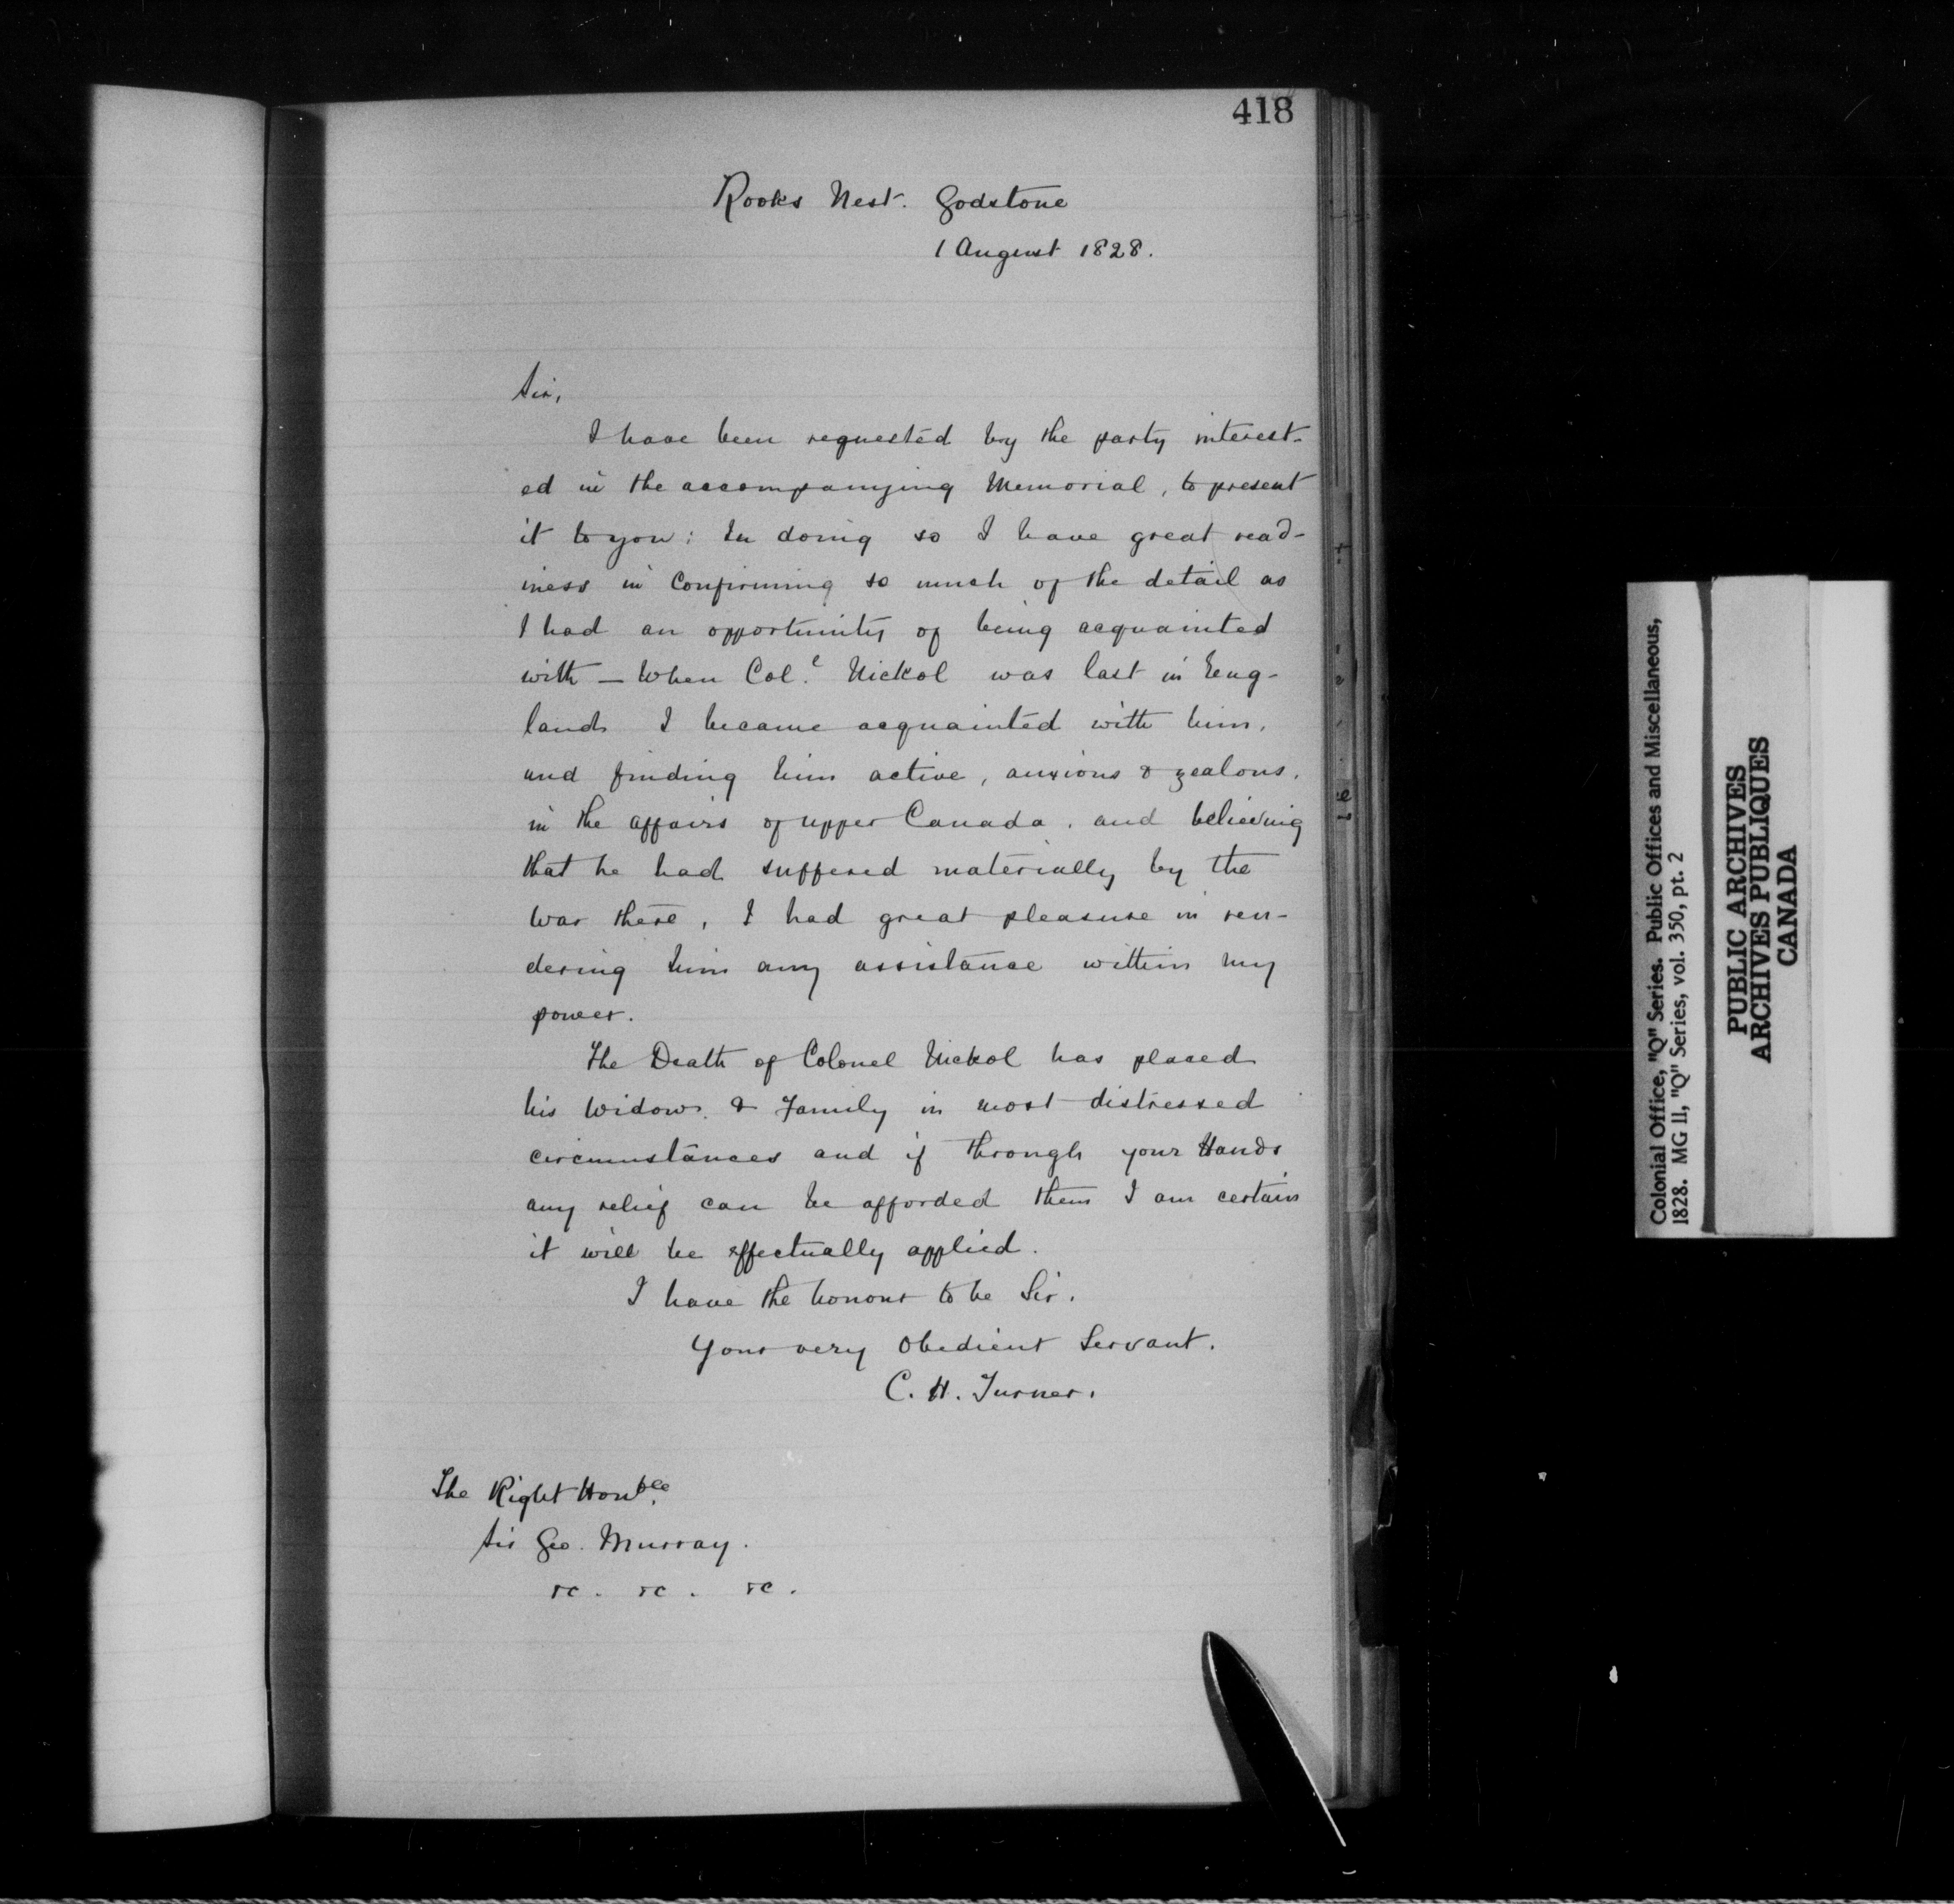 418
Rooks Nest. Godstone
1 August 1828.
Sir,
I have been requested by the party interest-
ed in the accompanying Memorial, to present
it to you: In doing so I have great read-
iness in Confirming so much of the detail as
I had an opportunity of being acquainted
with — When Col.l Nickol was last in Eng-
land I became acquainted with him,
and finding him active, anxious & zealous,
in the affairs of upper Canada, and believing
that he had suffered materially by the
War there, I had great pleasure in ren-
dering him any assistance within my
power.
The Death of Colonel Nickol has placed
his Widow & Family in most distressed
circumstances and if through your Hands
any relief can be afforded them I am certain
it will be effectually applied.
I have the honour to be Sir,
Your very Obedient Servant.
C. H. Turner.
The Right Honble.
Sir Geo. Murray.
&c. &c. &c.
Colonial Office, "Q" Series. Public Offices and Miscellaneous,
1828. MG 11, "Q" Series, vol. 350, pt. 2
PUBLIC ARCHIVES
ARCHIVES PUBLIQUES
CANADA